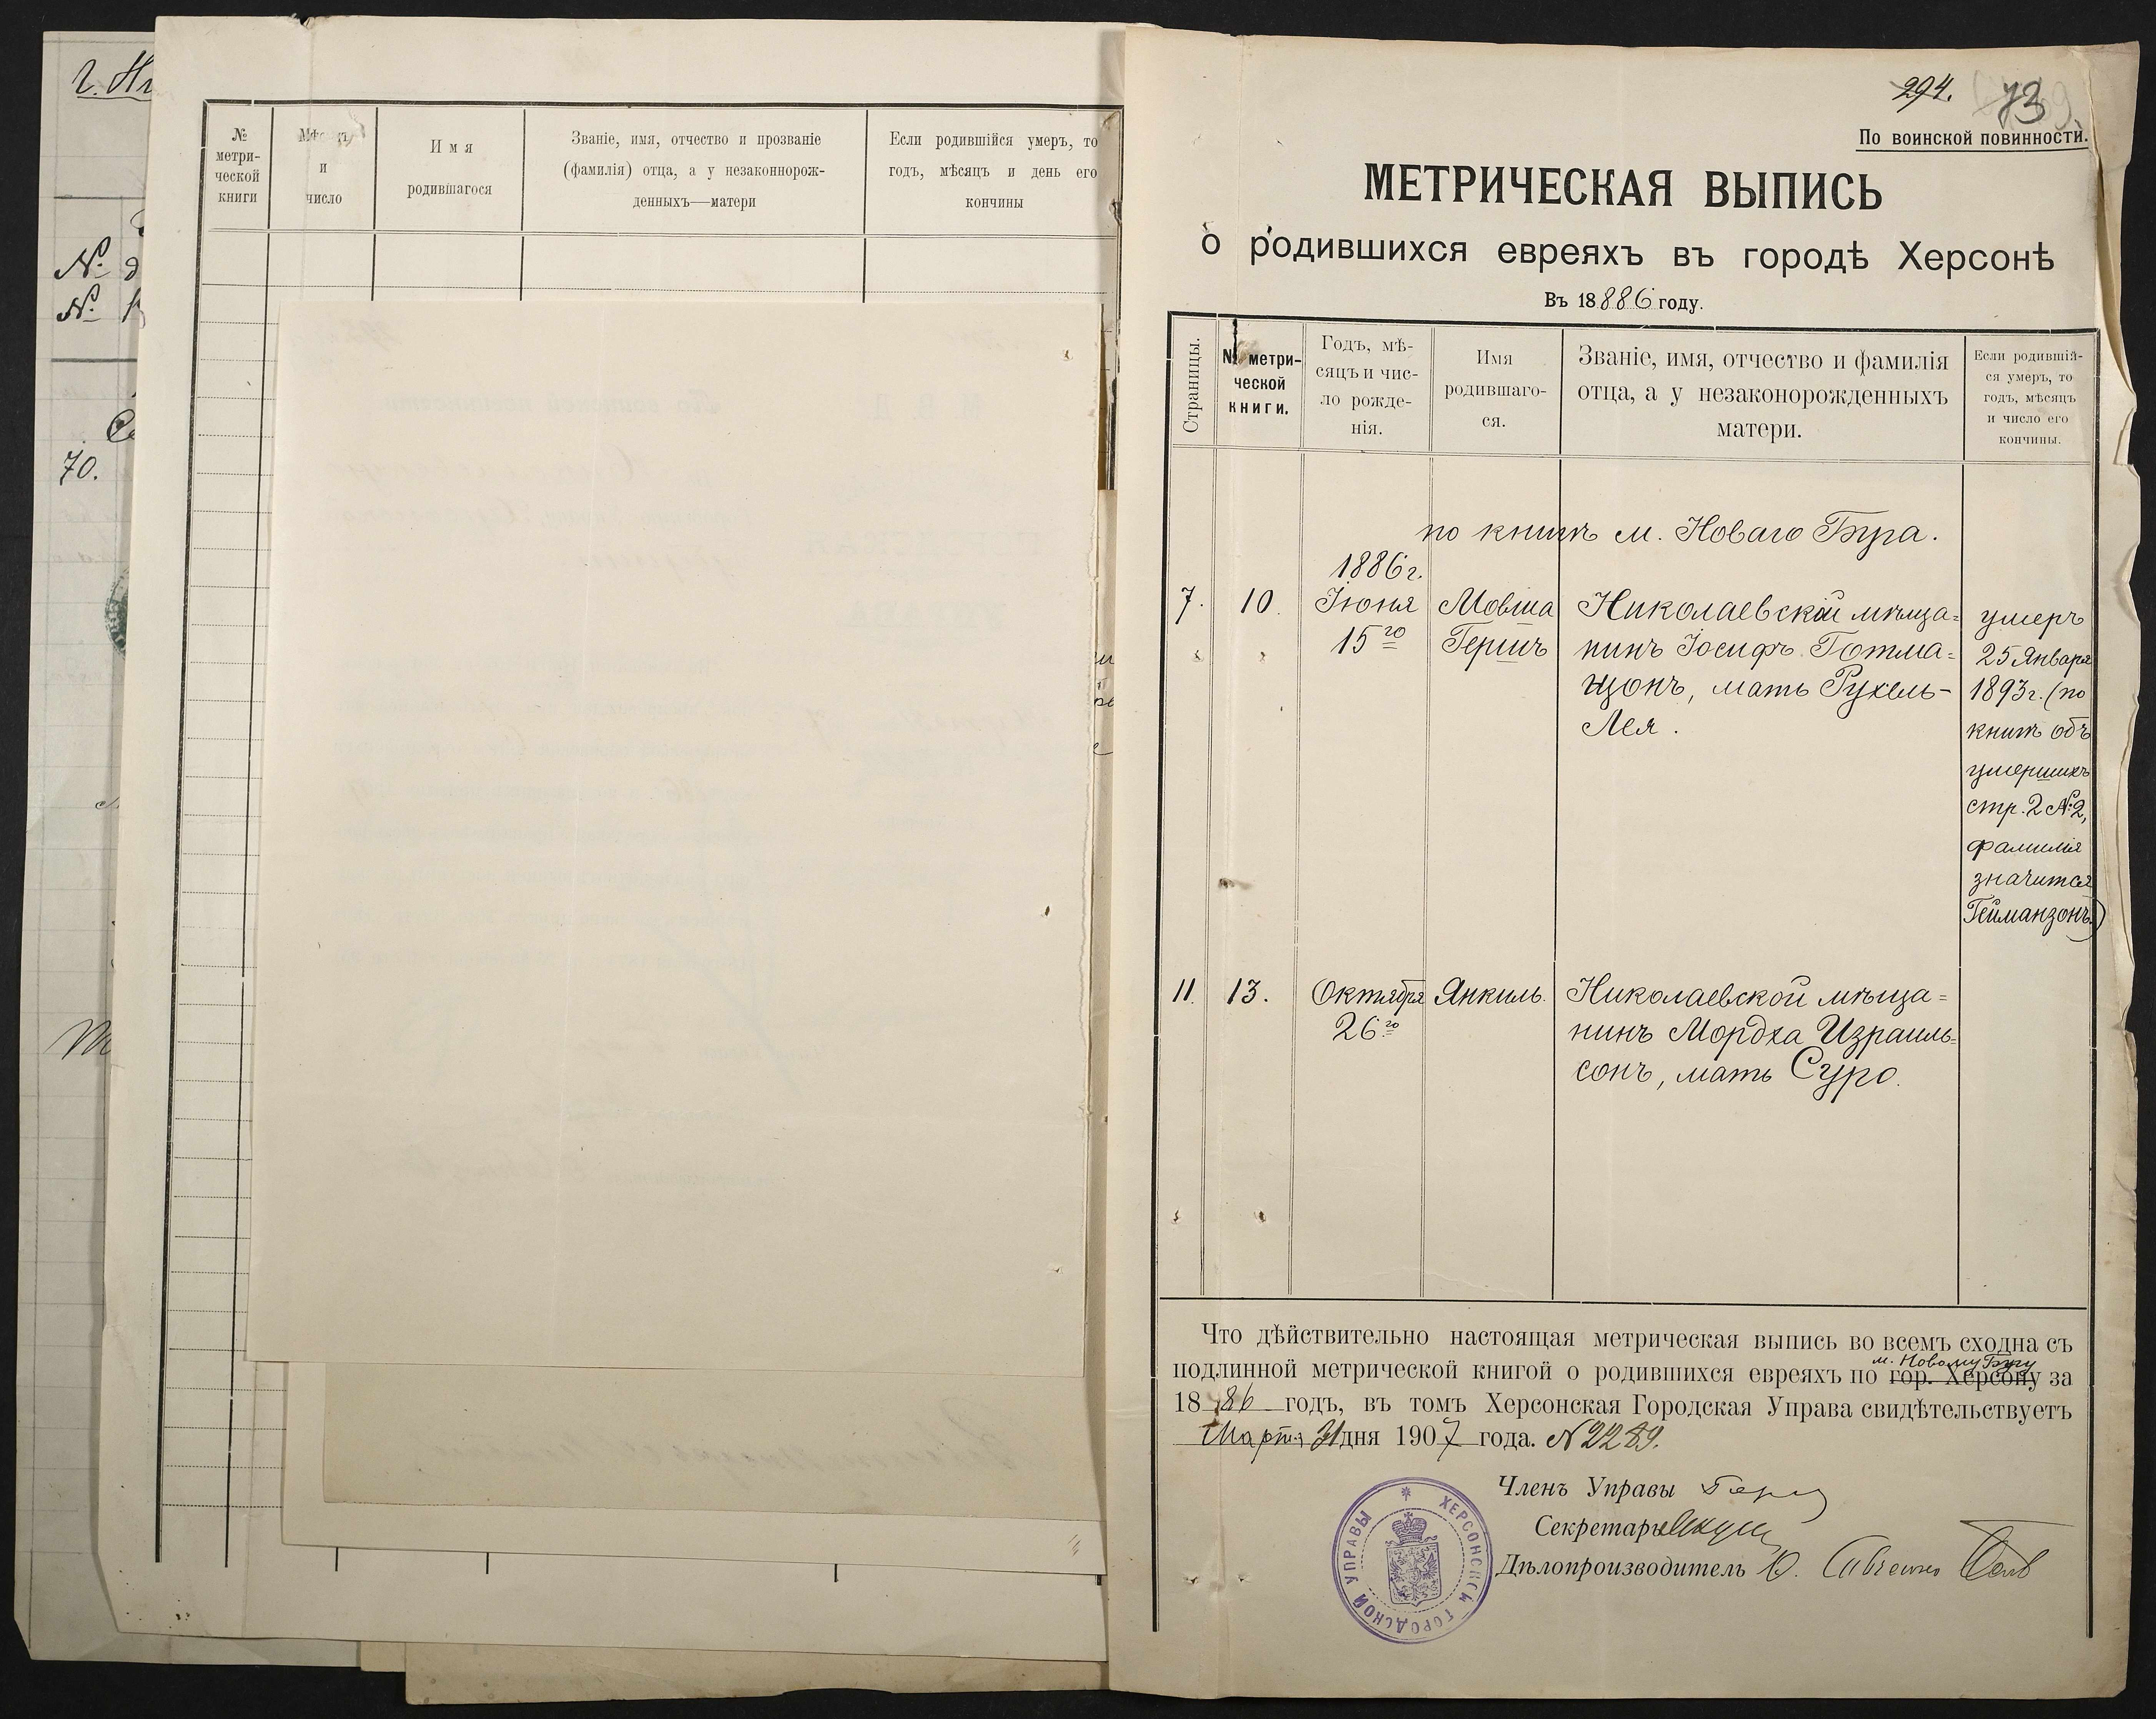 г. Ни
№ д
№
70.
№
метри-
ческой
книги
и
число
Имя
родившагося
Званіе, имя, отчество и прозваніе
(фамилія) отца, а у незаконнорож-
денныхъ—матери
Если родившійся умеръ, то
годъ, мѣсяцъ и день его
кончины
294. 73
По воинской повинности.
МЕТРИЧЕСКАЯ ВЫПИСЬ
о родившихся евреяхъ въ городѣ Херсонѣ
Въ 18886 году.
Страницы.
№ метри-
ческой
книги.
Годъ, мѣ-
сяцъ и чис-
ло рожде-
нія.
Имя
родившаго-
ся.
Званіе, имя, отчество и фамилія
отца, а у незаконорожденныхъ
матери.
Если родившій-
ся умеръ, то
годъ, мѣсяцъ
и число его
кончины.
по книгѣ м. Новаго Буга.
7.
10.
1886 г.
Іюня
15го
Мовша
Гершъ
Николаевской мѣща=
нинъ Іосифъ Готма=
нзонъ, мать Рухель-
Лея.
умеръ
25 Января
1893 г. (по
книгѣ объ
умершихъ
стр. 2 №2,
фамилія
значится
Гейманзонъ)
11.
13.
Октября
26го
Янкиль.
Николаевской мѣща=
нинъ Мордха Израиль=
сонъ, мать Суро.
Что дѣйствительно настоящая метрическая выпись во всемъ сходна съ
м. Новому Бугу
подлинной метрической книгой о родившихся евреяхъ по гор. Херсону за
1886 годъ, въ томъ Херсонская Городская Управа свидѣтельствуетъ
Марта 31 дня 1907 года. №2289.
Членъ Управы
Секретарь
Дѣлопроизводитель Ю.
ХЕРСОНСКОЙ ГОРОДСКОЙ УПРАВЫ